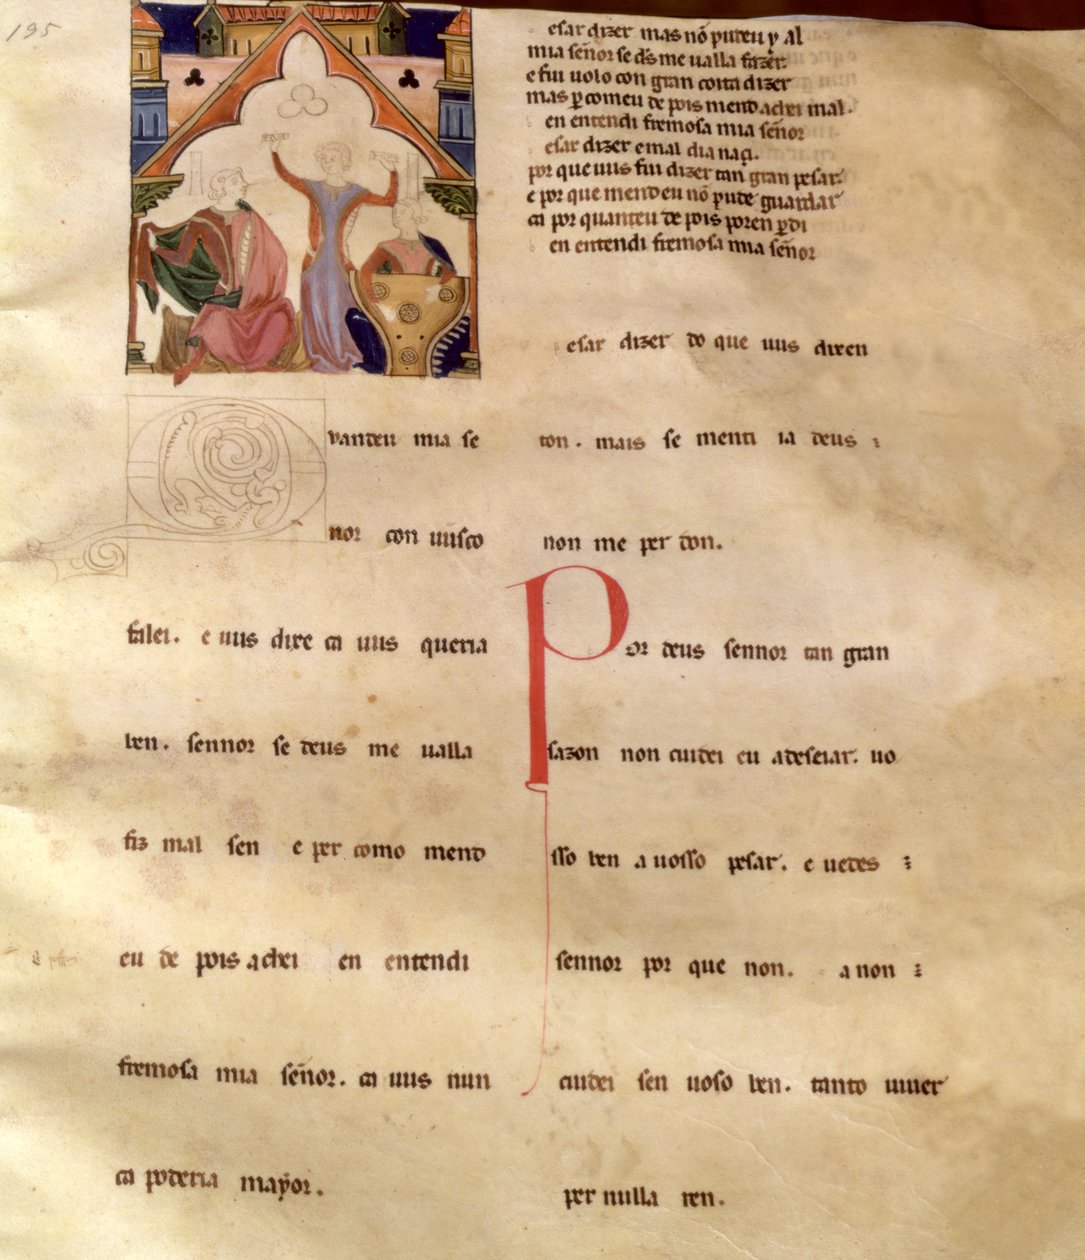 195
vandeu mia se
nor con uusco
falei. e uus dixe ca uus queria
ben. sennor se deus me ualla
fiz mal sen e per como mend
eu de pois achei en entendi
fremosa mia señor. ca uus nun
ca poderia mayor.
esar dizer mas nõ pudeu y al
mia señor se d̃s me ualla fazer.
e fui uolo con gran coita dizer
mas ꝑ comeu de pois mend achei mal.
en entendi fremosa mia señor
esar dizer e mal dia naçi.
por que uus fui dizer tan gran pesar.
e por que mend eu nõ pude guardar
ca por quanteu de pois poren ꝑdi
en entendi fremosa mia señor
esar dizer do que uus dixen
ton. mais se menti ia deus
non me per don.
Por deus sennor tan gran
sazon non cuidei eu a deseiar. uo
sso ben a uosso pesar. e uedes
sennor por que non. a non
cuidei sen uoso ben. tanto uiuer
per nulla ren.